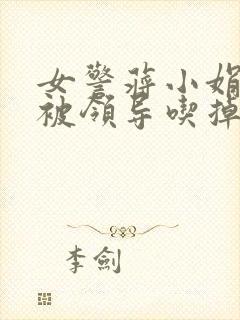 女警蒋小娟
被领导喫掉
李劍